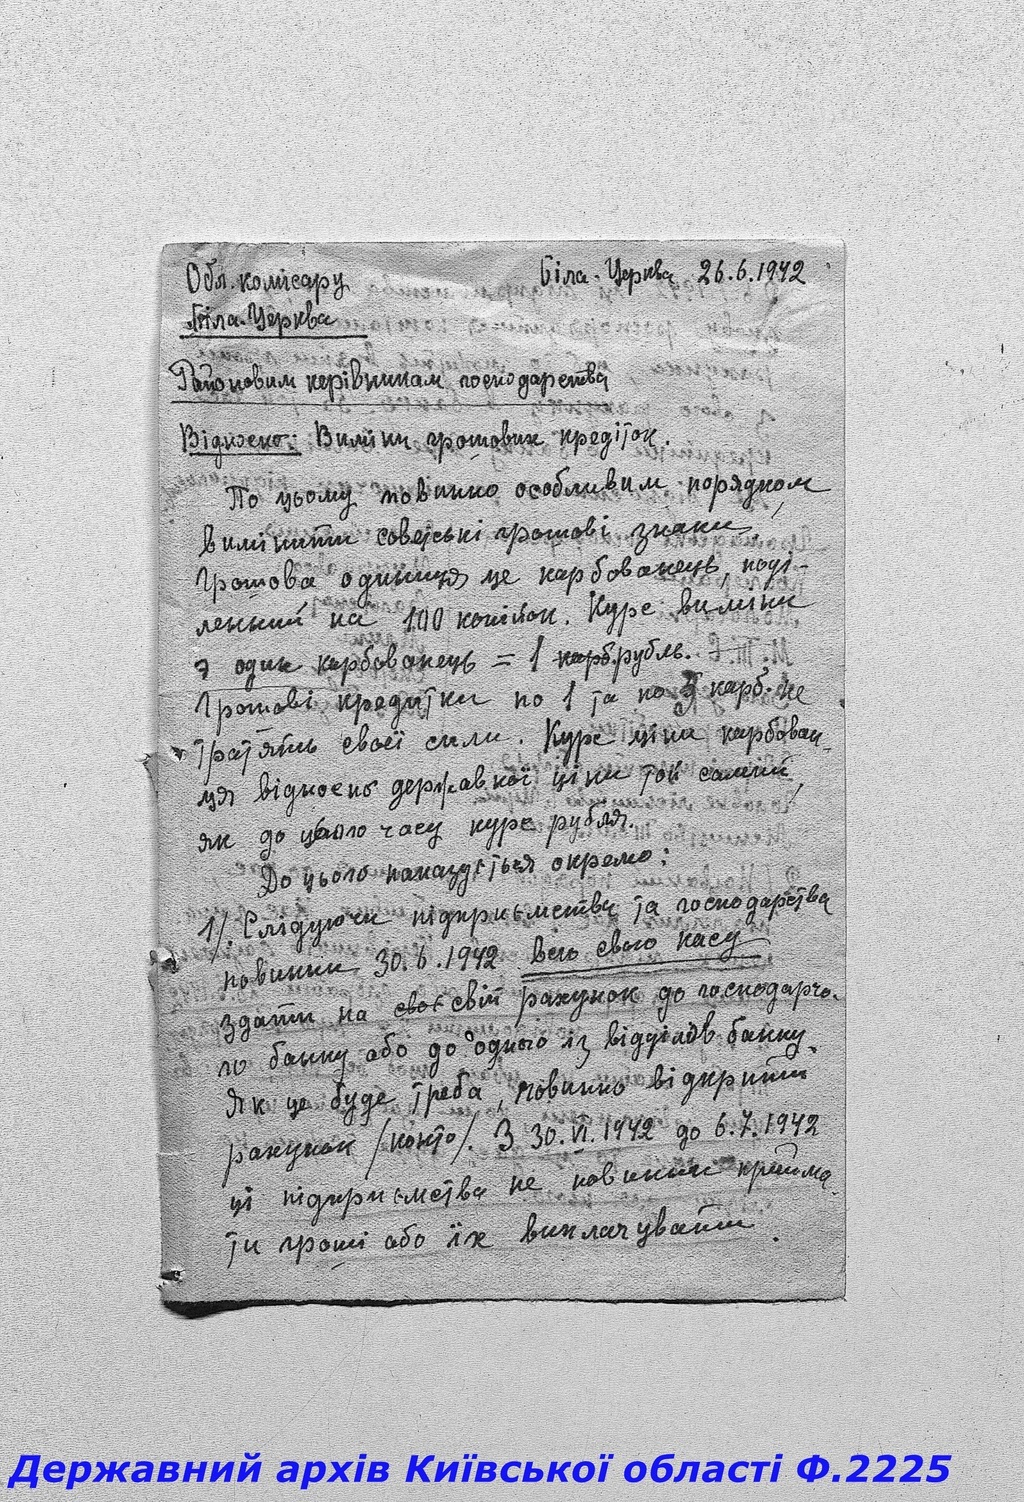 Обл. комісару
Біла-Церква 26.6.1942
Біла-Церква
Районовим керівникам господарства
Відносно: Виміни грошових кредіток.
По цьому повинно особливим порядком
вимінити совєцькі грошові знаки
Грошова одиниця це карбованець, поді-
лений на 100 копійок. Курс виміни
з один карбованець = 1 карб.рубль.
Грошові кредитки по 1 та по 3 карб. не
тратять своєї сили. Курс ціни карбован-
ця відносно державної ціни той самий,
як до цього часу курс рубля.
До цього наказується окремо:
1/. Слідуючи підприємства та господарства
повинни 30.6.1942 всю свою касу
здати на своє свій рахунок до господарчо-
го банку або до одного із відділів банку.
Як це буде треба, повинно відкрити
рахунок /конто/. З 30.VI.1942 до 6.7.1942
ці підприємства не повинни прийма-
ти гроші або їх виплачувати.
Державний архів Київської області Ф.2225